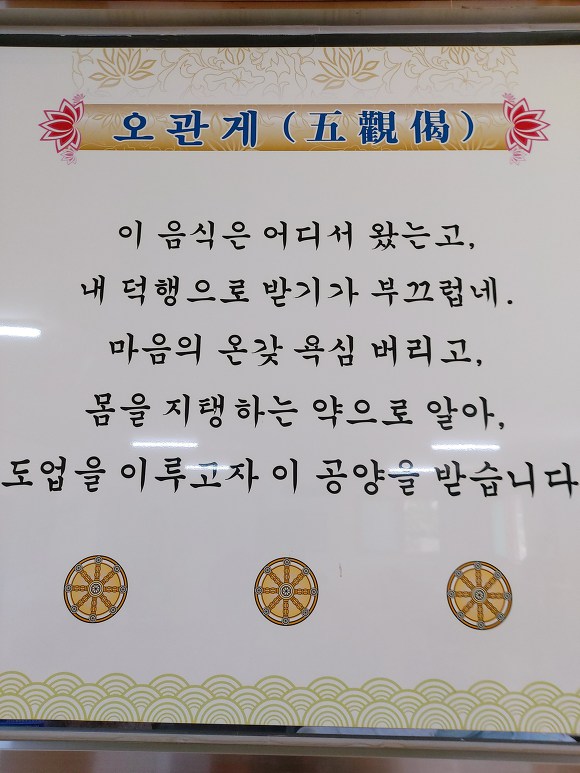 오관게 (五觀偈)
이 음식은 어디서 왔는고,
내 덕행으로 받기가 부끄럽네.
마음의 온갖 욕심 버리고,
몸을 지탱하는 약으로 알아,
도업을 이루고자 이 공양을 받습니다